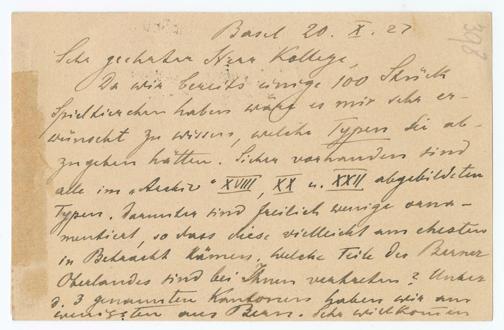 Basel 20. X. 27
398
Sehr geehrter Herr Kollege,
Da wir bereits einige 100 Stück
Spieltierchen haben wäre es mir sehr er-
wünscht zu wissen, welche Typen Sie ab-
zugeben hätten. Sicher vorhanden sind
alle im "Archiv" XVIII, XX u. XXII abgebildeten
Typen. Darunter sind freilich wenige orna-
mentiert, so dass diese vielleicht am ehesten
in Betracht kämen. Welche Teile des Berner
Oberlandes sind bei Ihnen vertreten? Unter
d. 3 genannten Kantonen haben wir am
wenigsten aus Bern. Sehr willkommen